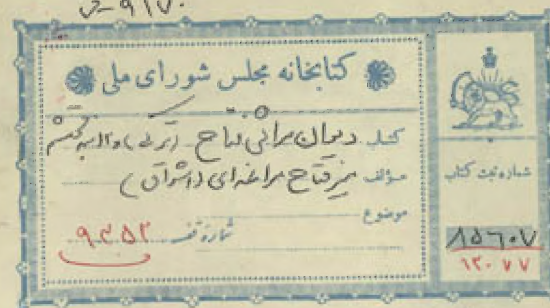 ۹۱۷۰
کتابخانه مجلس شورای ملی
کتاب دیوان مراثی فتاح (ترکی)
مؤلف میرفتاح مراغه‌ای (اشراق)
موضوع
شماره قفسه ۹۳۵۲
شماره ثبت کتاب
۸۵۶۰۷
۱۲۰۷۷